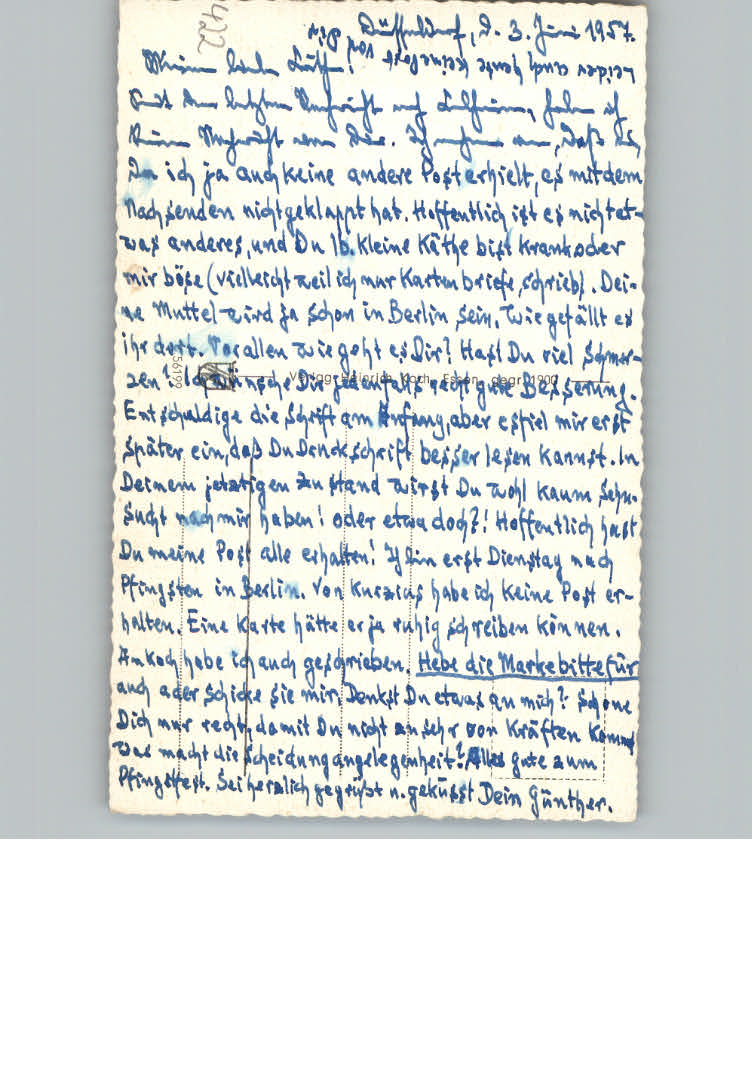 4422
Düsseldorf, d. 3. Juni 1957.
leider auch heute keine Post von Dir
Meine liebe Käthe!
Seit der letzten Nachricht auf habe ich
keine Nachricht von Dir. Ich nehme an, daß es,
da ich ja auch keine andere Post erhielt, es mit dem
Nachsenden nicht geklappt hat. Hoffentlich ist es nicht et-
was anderes, und Du lb. kleine Käthe bist krank oder
mir böse (vielleicht weil ich nur Kartenbriefe schrieb). Dei-
ne Muttel wird ja schon in Berlin sein. Wie gefällt es
ihr dort. Vor allen wie geht es Dir? Hast Du viel Schmer-
56199 Verlag Heinrich Koch, Essen, gegr. 1900
zen? Ich wünsche Dir jedenfalls recht gute Besserung.
Entschuldige die Schrift am Anfang, aber es fiel mir erst
später ein, daß Du Druckschrift besser lesen kannst. In
Deinem jetzigen Zustand wirst Du wohl kaum Sehn-
sucht nach mir haben! oder etwa doch?! Hoffentlich hast
Du meine Post alle erhalten! Ich bin erst Dienstag nach
Pfingsten in Berlin. Von Kurzius habe ich keine Post er-
halten. Eine Karte hätte er ja ruhig schreiben können.
An Koch habe ich auch geschrieben. Hebe die Marke bitte für
auch oder schicke sie mir. Denkst Du etwas an mich? Schone
Dich nur recht, damit Du nicht zu sehr von Kräften kommst
Was macht die Scheidungangelegenheit? Alles gute zum
Pfingstfest. Sei herzlich gegrüßt u. geküsst Dein Günther.